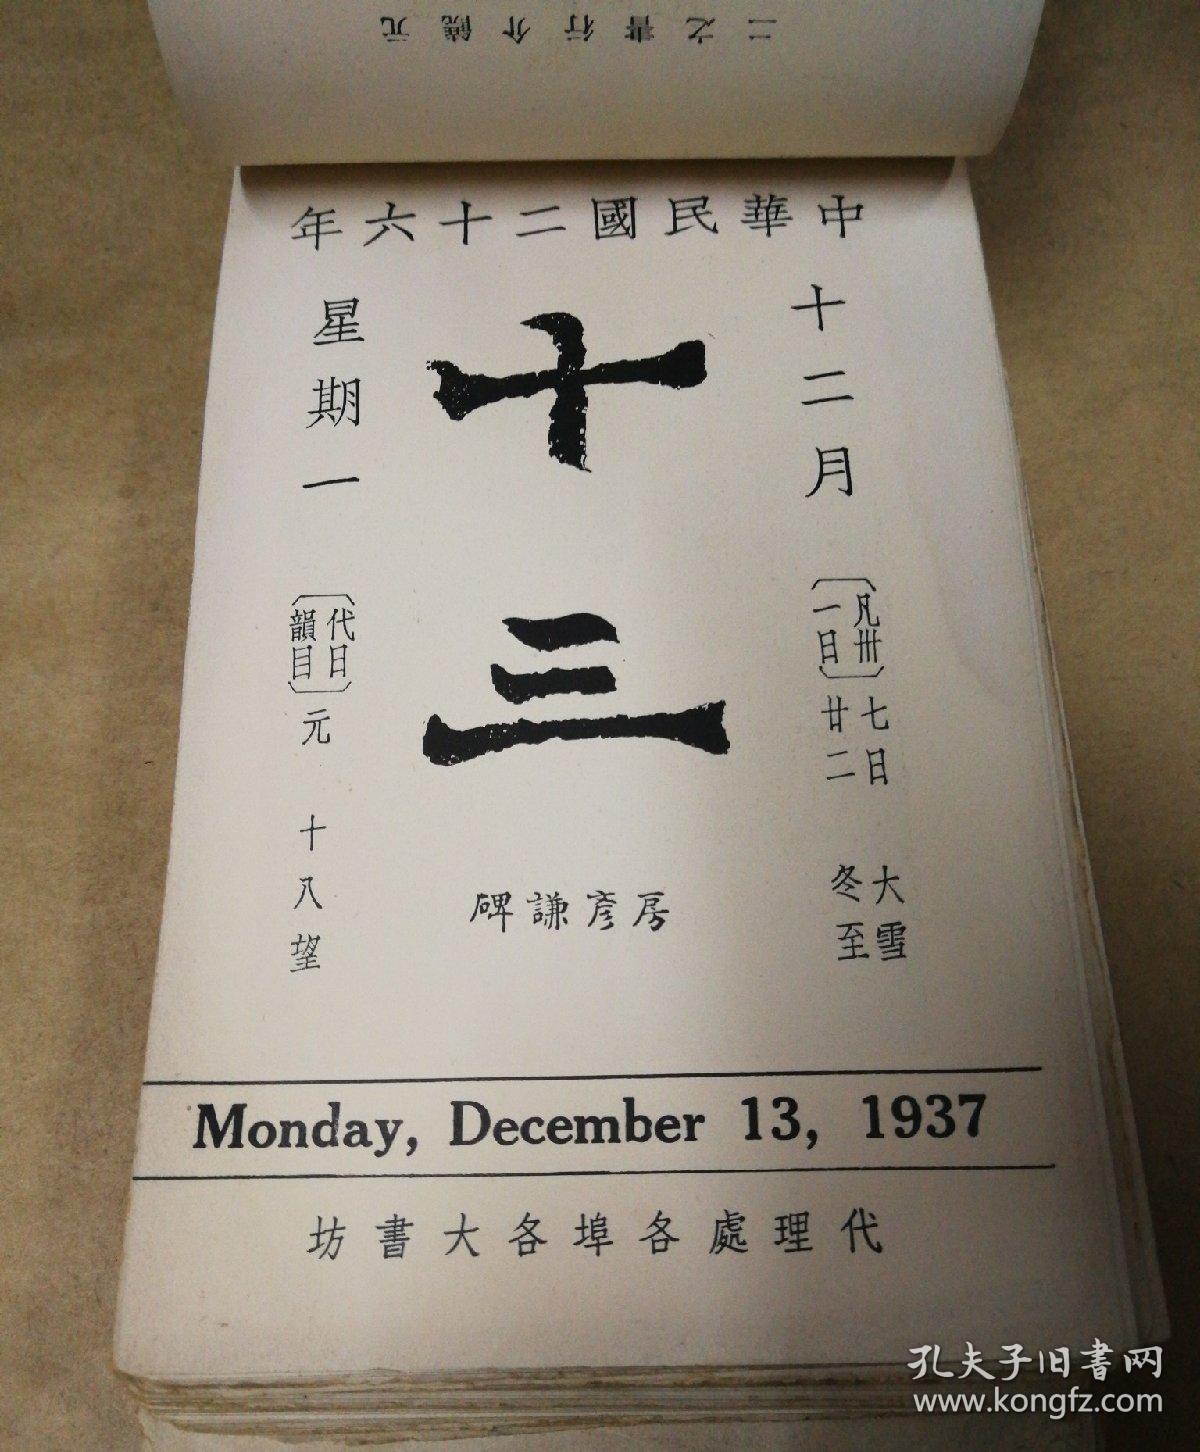 二之書行介饒元
中華民國二十六年
十二月
〔凡卅一日〕
七日 大雪
廿二 冬至
十三
房彥謙碑
星期一
〔代日韻目〕元
十八望
Monday, December 13, 1937
代理處各埠各大書坊
孔夫子旧書网
www.kongfz.com